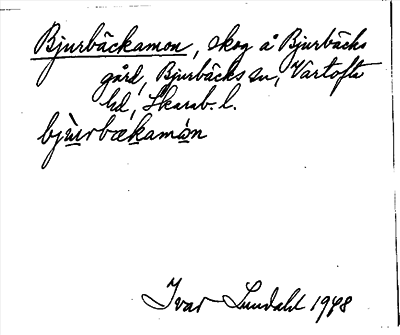 Bjurbäckamon, skog å Bjurbäcks
gård, Bjurbäcks sn, Vartofta
hd, Skarab. l.
bjùurbækamòn
Ivar Lundahl 1948